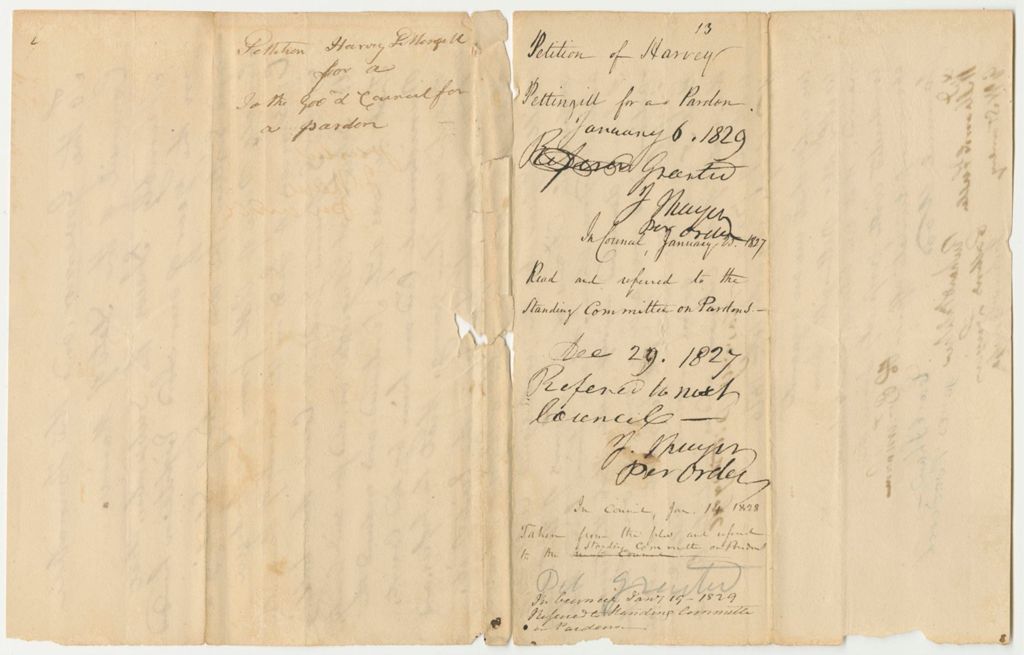 Petition Harvey Pettengill
for a
To the Gov & Council for
a pardon
13
Petition of Harvey
Pettingill for a Pardon.
January 6. 1829
Granted
per order
In Council, January 1827
Read and referred to the
Standing Committee on Pardons—
Dec 29. 1827
Refered to next
Council —
per order
In Council, Jan. 14 1828
Taken from the files and referred
to the Standing Committee on Pardons
Granted
In Council Jany 15— 1829
Refered to Standing Committee
on Pardons